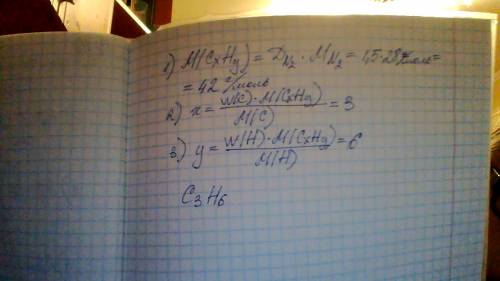 1) M(CxHy) = D_N2 · M_N2 = 1,5·28 г/моль =
= 42 г/моль
2) x = W(C)·M(CxHy) / M(C) = 3
3) y = W(H)·M(CxHy) / M(H) = 6
C3H6